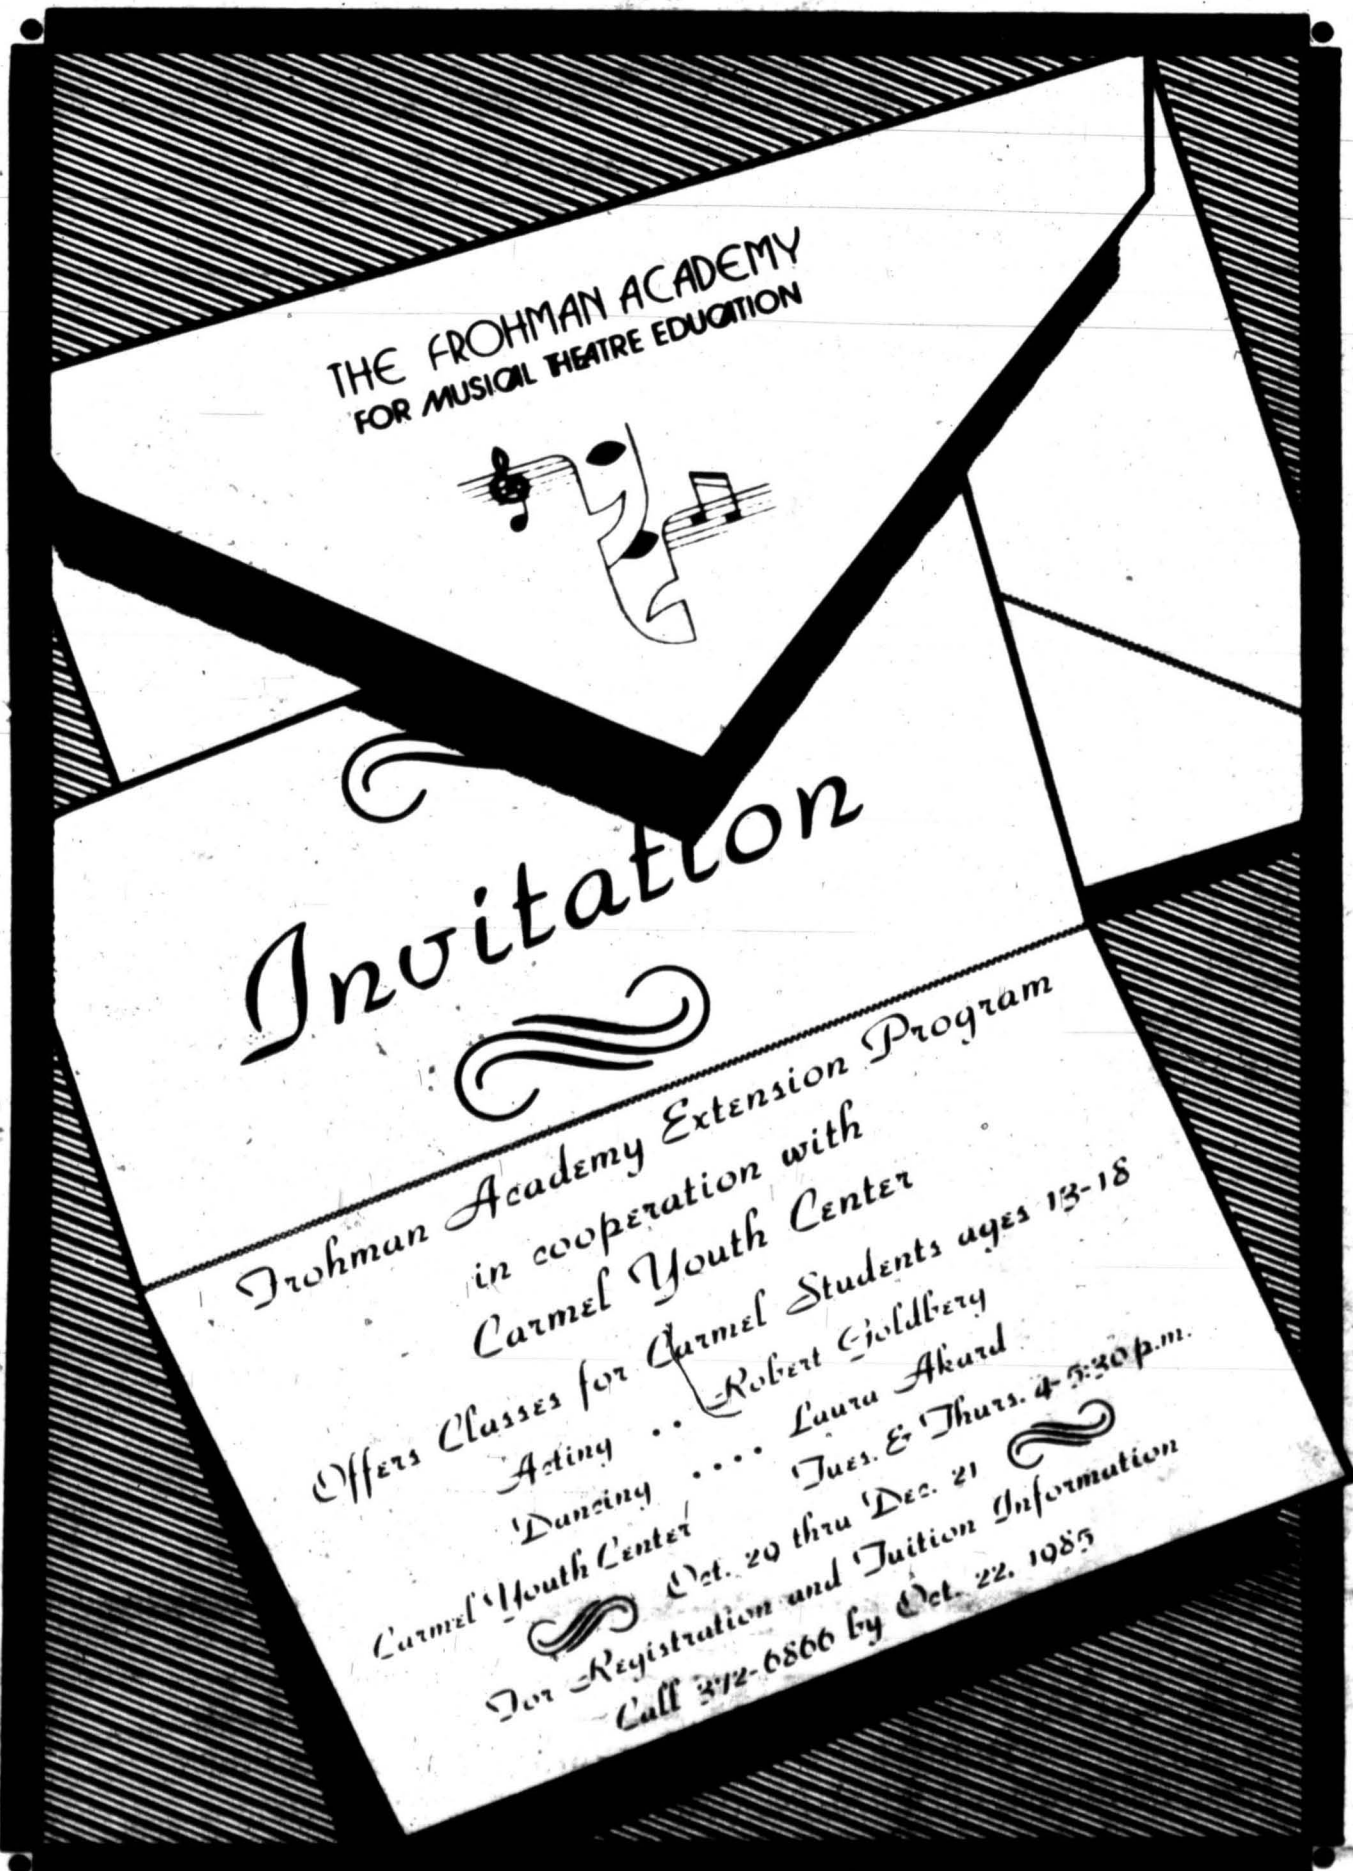 THE FROHMAN ACADEMY
FOR MUSICAL THEATRE EDUCATION
Invitation
Frohman Academy Extension Program
in cooperation with
Carmel Youth Center
Offers Classes for Carmel Students ages 13-18
Acting .. Robert Goldberg
Dancing .... Laura Akard
Carmel Youth Center Tues. & Thurs. 4-5:30 p.m.
Oct. 29 thru Dec. 21
For Registration and Tuition Information
Call 372-6866 by Oct. 22, 1985